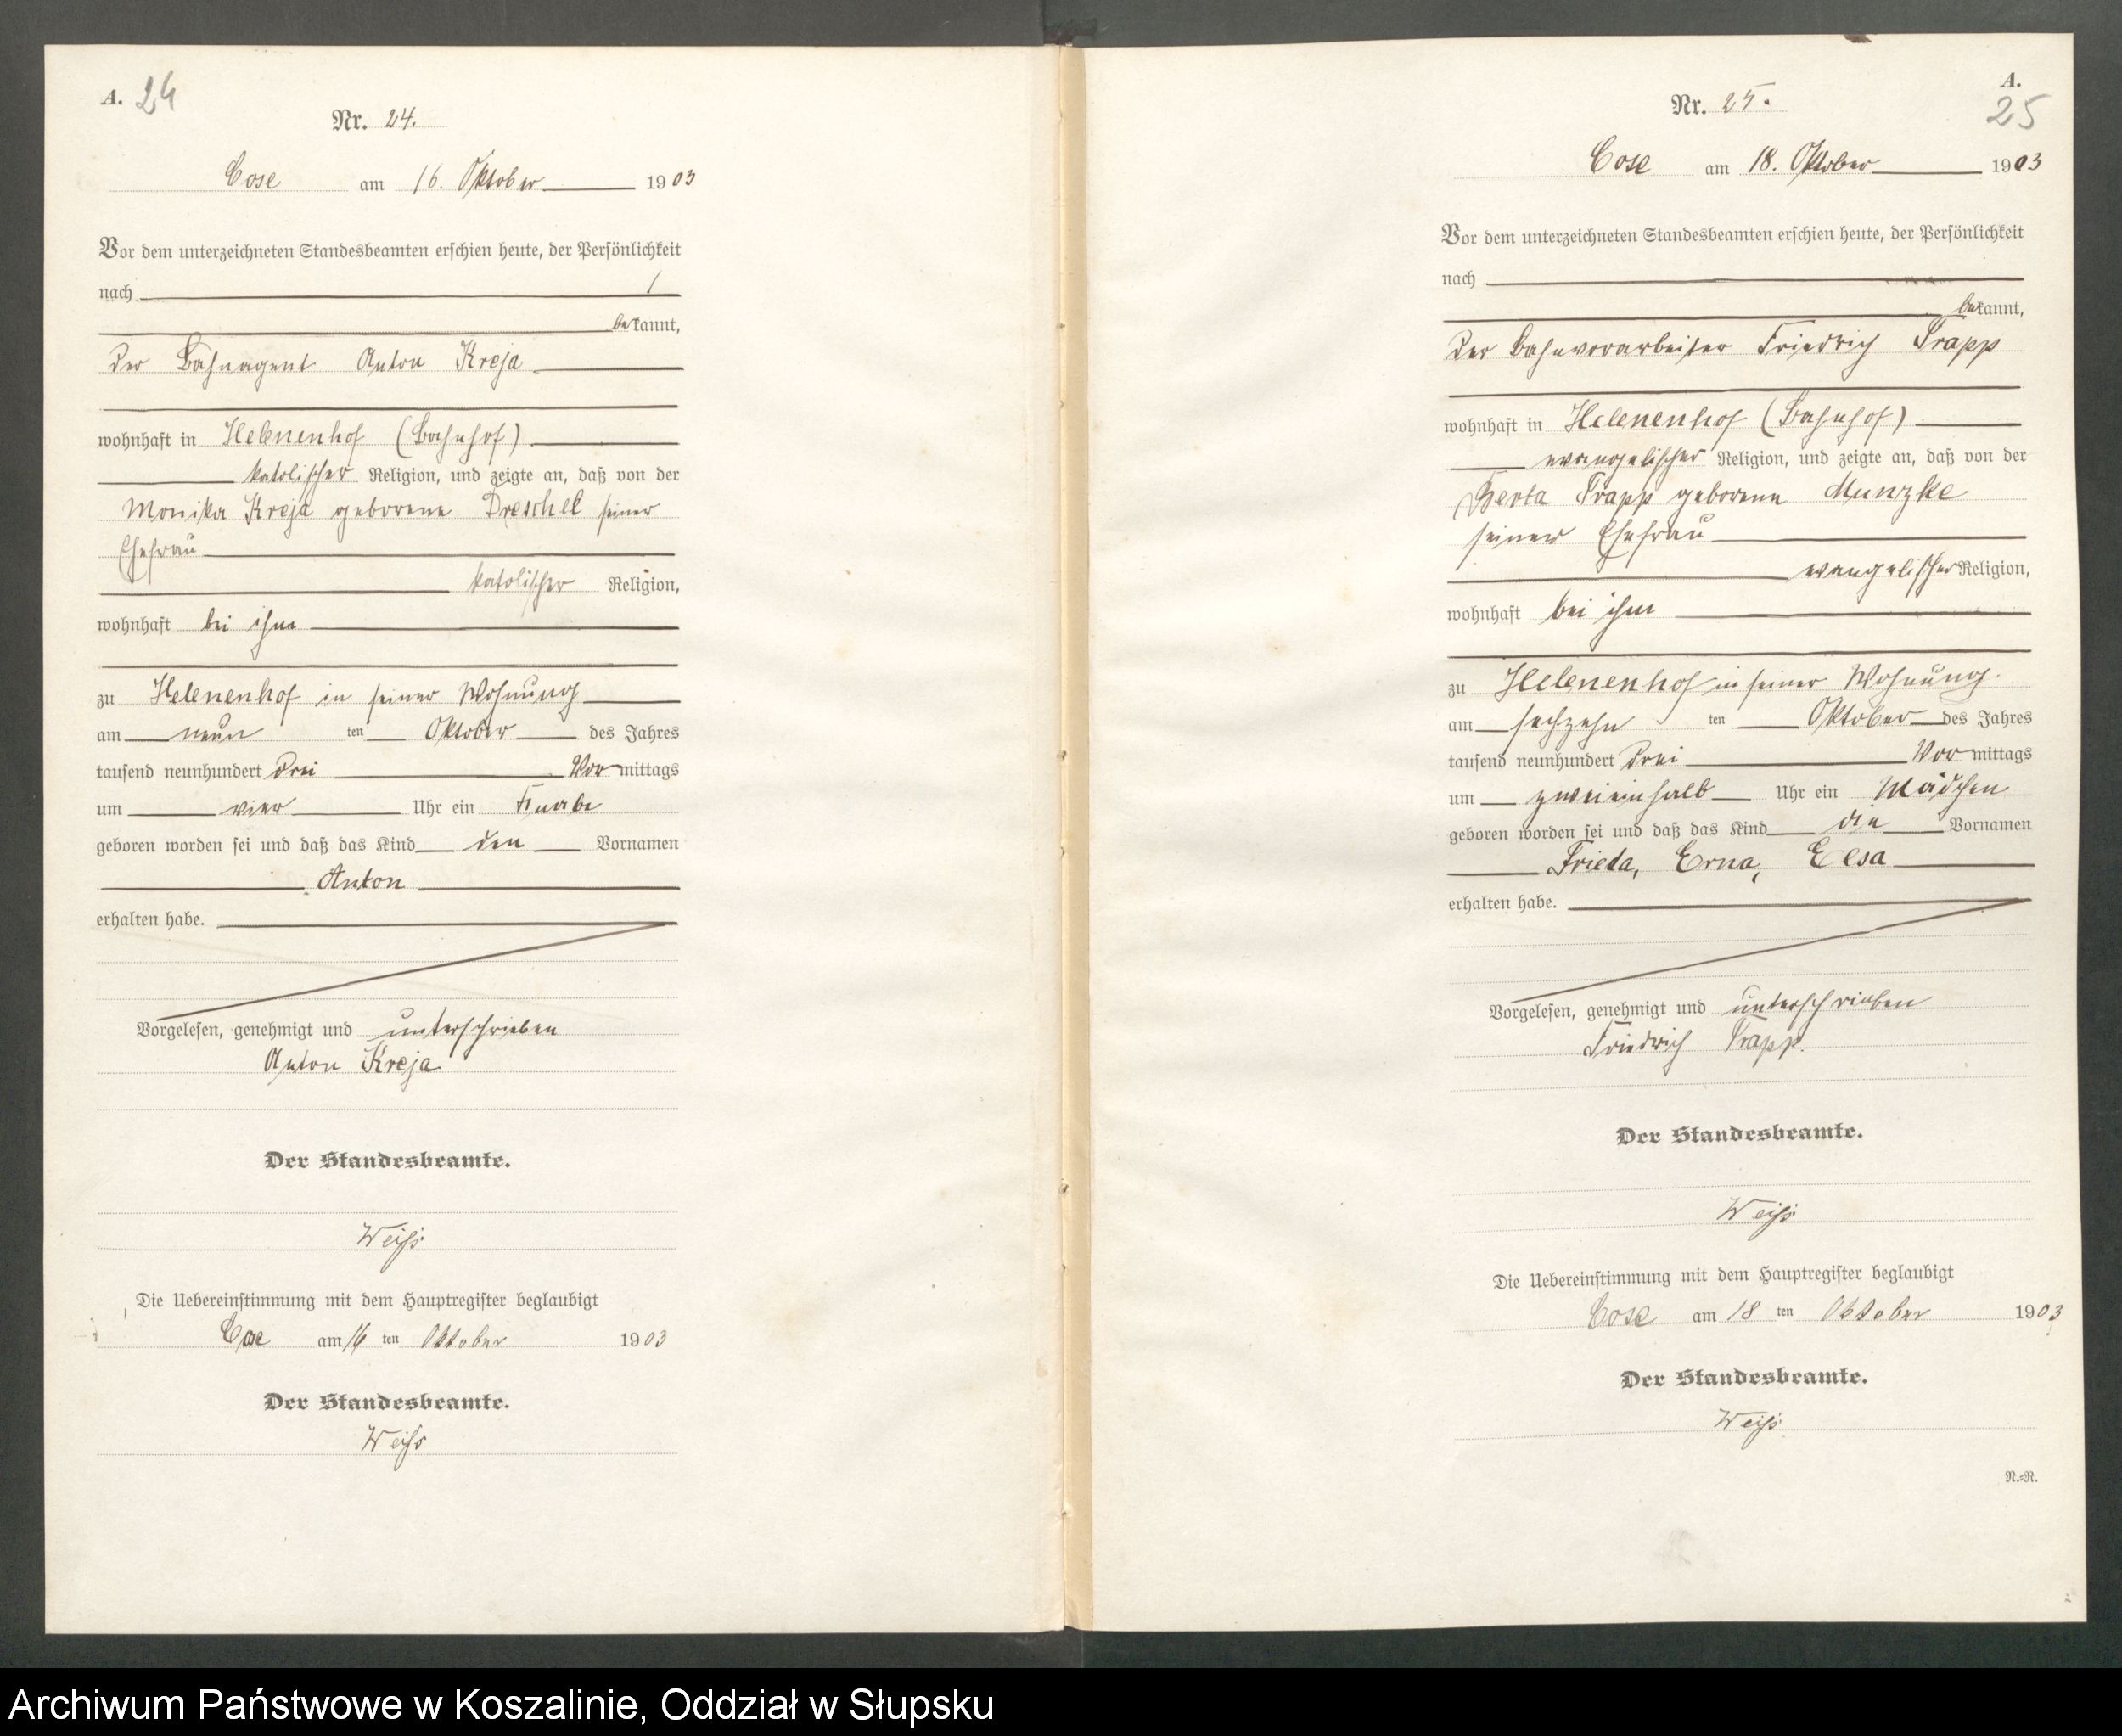 A. 24
Nr. 24.
Cose am 16. Oktober 1903
Vor dem unterzeichneten Standesbeamten erschien heute, der Persönlichkeit
nach
bekannt,
der Bahnagent Anton Kreja
wohnhaft in Helenenhof (Bahnhof)
katolischer Religion, und zeigte an, daß von der
Monika Kreja geborene Dreschel seiner
Ehefrau
katolischer Religion,
wohnhaft bei ihm
zu Helenenhof in seiner Wohnung
am neun ten Oktober des Jahres
tausend neunhundert drei Vor mittags
um vier Uhr ein Knabe
geboren worden sei und daß das Kind den Vornamen
Anton
erhalten habe.
Vorgelesen, genehmigt und unterschrieben
Anton Kreja
Der Standesbeamte.
Weiß
Die Uebereinstimmung mit dem Hauptregister beglaubigt
Cose am 16 ten Oktober 1903
Der Standesbeamte.
Weiß
A.
25
Nr. 25.
Cose am 18. Oktober 1903
Vor dem unterzeichneten Standesbeamten erschien heute, der Persönlichkeit
nach
bekannt,
der Bahnvorarbeiter Friedrich Trapp
wohnhaft in Helenenhof (Bahnhof)
evangelischer Religion, und zeigte an, daß von der
Berta Trapp geborene Munzke
seiner Ehefrau
evangelischer Religion,
wohnhaft bei ihm
zu Helenenhof in seiner Wohnung
am sechzehn ten Oktober des Jahres
tausend neunhundert drei Vor mittags
um zweieinhalb Uhr ein Mädchen
geboren worden sei und daß das Kind die Vornamen
Frieda, Erna, Elsa
erhalten habe.
Vorgelesen, genehmigt und unterschrieben
Friedrich Trapp.
Der Standesbeamte.
Weiß
Die Uebereinstimmung mit dem Hauptregister beglaubigt
Cose am 18 ten Oktober 1903
Der Standesbeamte.
Weiß
N.=N.
Archiwum Państwowe w Koszalinie, Oddział w Słupsku